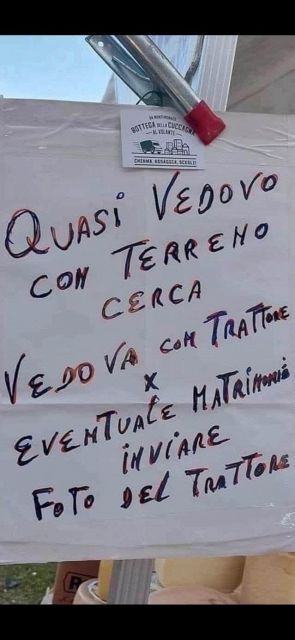 DA MONTEMONACO
BOTTEGA DELLA CUCCAGNA
AL VOLANTE
CHIAMA, ASSAGGIA, SCEGLI!
QUASI VEDOVO
CON TERRENO
CERCA
VEDOVA CON TRATTORE
X
EVENTUALE MATRIMONIO
INVIARE
FOTO DEL TRATTORE